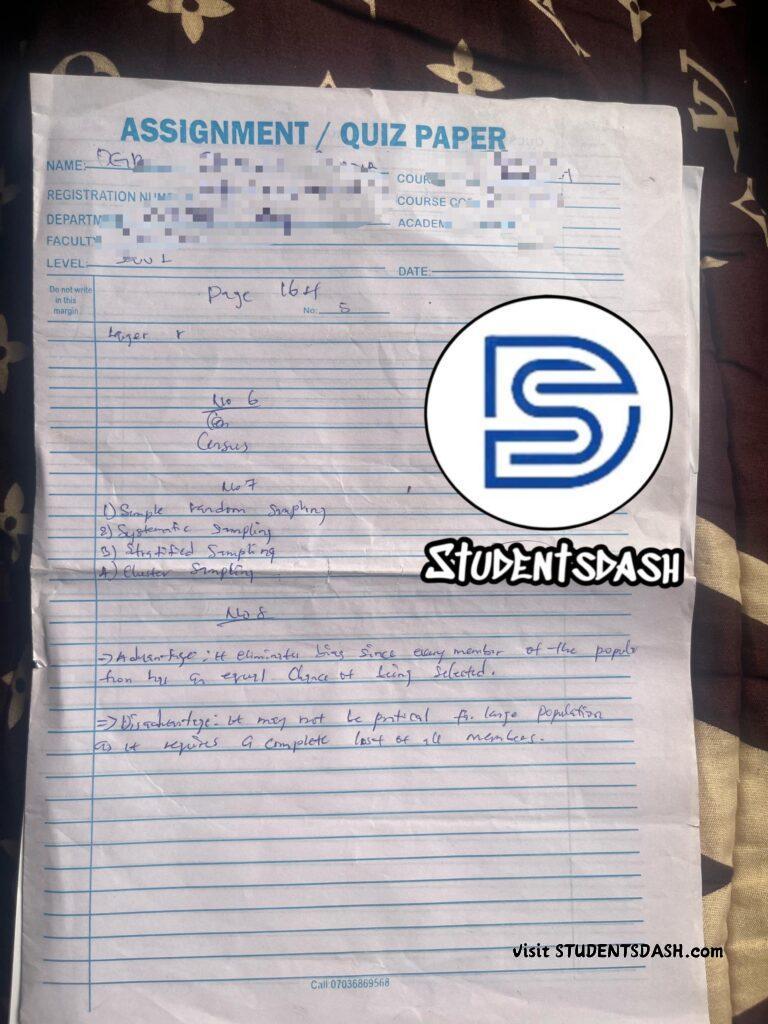 ASSIGNMENT / QUIZ PAPER
NAME:
COUR
REGISTRATION NUM
COURSE CO
DEPARTM
ACADEM
FACULTY
LEVEL:
DATE:
Do not write
in this
margin
Page
No: 5
Larger r
No 6
Census
No 7
1) Simple random Sampling
2) Systematic Sampling
3) Stratified Sampling
4) Cluster Sampling
No 8
=> Advantage: it eliminates bias since every member of the popula
tion has an equal chance of being selected.
=> Disadvantage: it may not be pratical for large population
as it requires a complete list of all members.
STUDENTSDASH
visit STUDENTSDASH.com
Call 07036869568